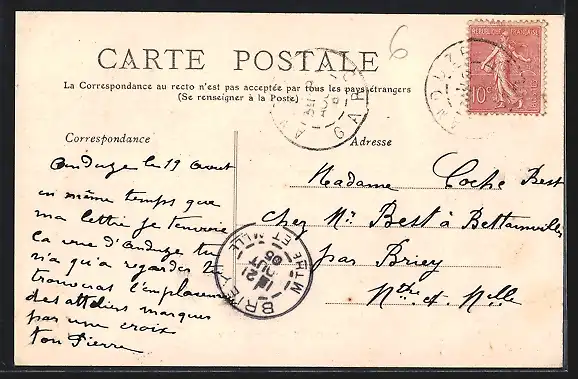 CARTE POSTALE
6
La Correspondance au recto n'est pas acceptée par tous les pays étrangers
(Se renseigner à la Poste)
RÉPUBLIQUE FRANÇAISE
10c
ANDUZE
GARD
Correspondance
Adresse
Anduze le 19 Aout
en même temps que
ma lettre je t'envoie
la vue d'Anduze tu
n'a qu'a regarder tu
trouveras l'emplacement
des atteliers marques
par une croix
ton Pierre
Madame Coche Best
chez Mr Best à Bettainvillers
par Briey
Mthe et Mlle
BRIEY
MTHE ET MLLE
21
AOUT
05